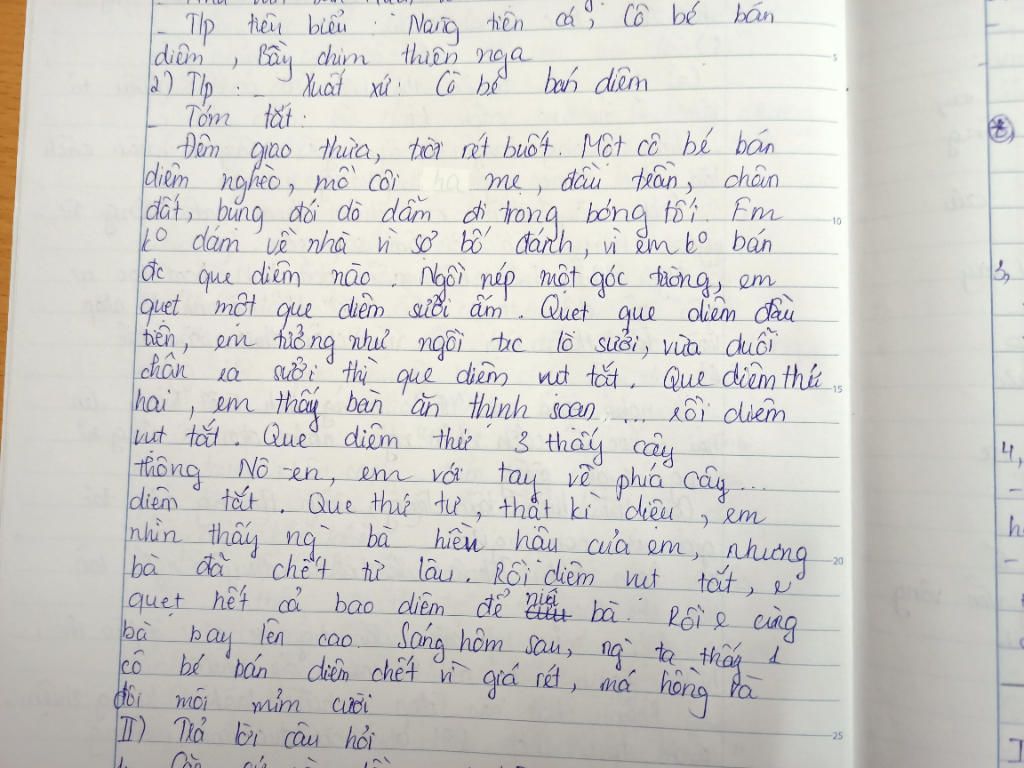 - T/p tiêu biểu: Nàng tiên cá; Cô bé bán
diêm, Bầy chim thiên nga
2) T/p: - Xuất xứ: Cô bé bán diêm
- Tóm tắt:
Đêm giao thừa, trời rét buốt. Một cô bé bán
diêm nghèo, mồ côi mẹ, đầu trần, chân
đất, bụng đói dò dẫm đi trong bóng tối. Em
ko dám về nhà vì sợ bố đánh, vì em ko bán
đc que diêm nào. Ngồi nép một góc tường, em
quẹt một que diêm sưởi ấm. Quẹt que diêm đầu
tiên, em tưởng như ngồi trc lò sưởi, vừa duỗi
chân ra sưởi thì que diêm vụt tắt. Que diêm thứ
hai, em thấy bàn ăn thịnh soạn ... rồi diêm
vụt tắt Que diêm thứ 3 thấy cây
thông Nô-en, em với tay về phía cây...
diêm tắt. Que thứ tư, thật kì diệu, em
nhìn thấy ng bà hiền hậu của em, nhưng
bà đã chết từ lâu. Rồi diêm vụt tắt, e
quẹt hết cả bao diêm để níu bà. Rồi e cùng
bà bay lên cao. Sáng hôm sau, ng ta thấy 1
cô bé bán diêm chết vì giá rét, má hồng và
đôi môi mỉm cười
II) Trả lời câu hỏi
3,
4,